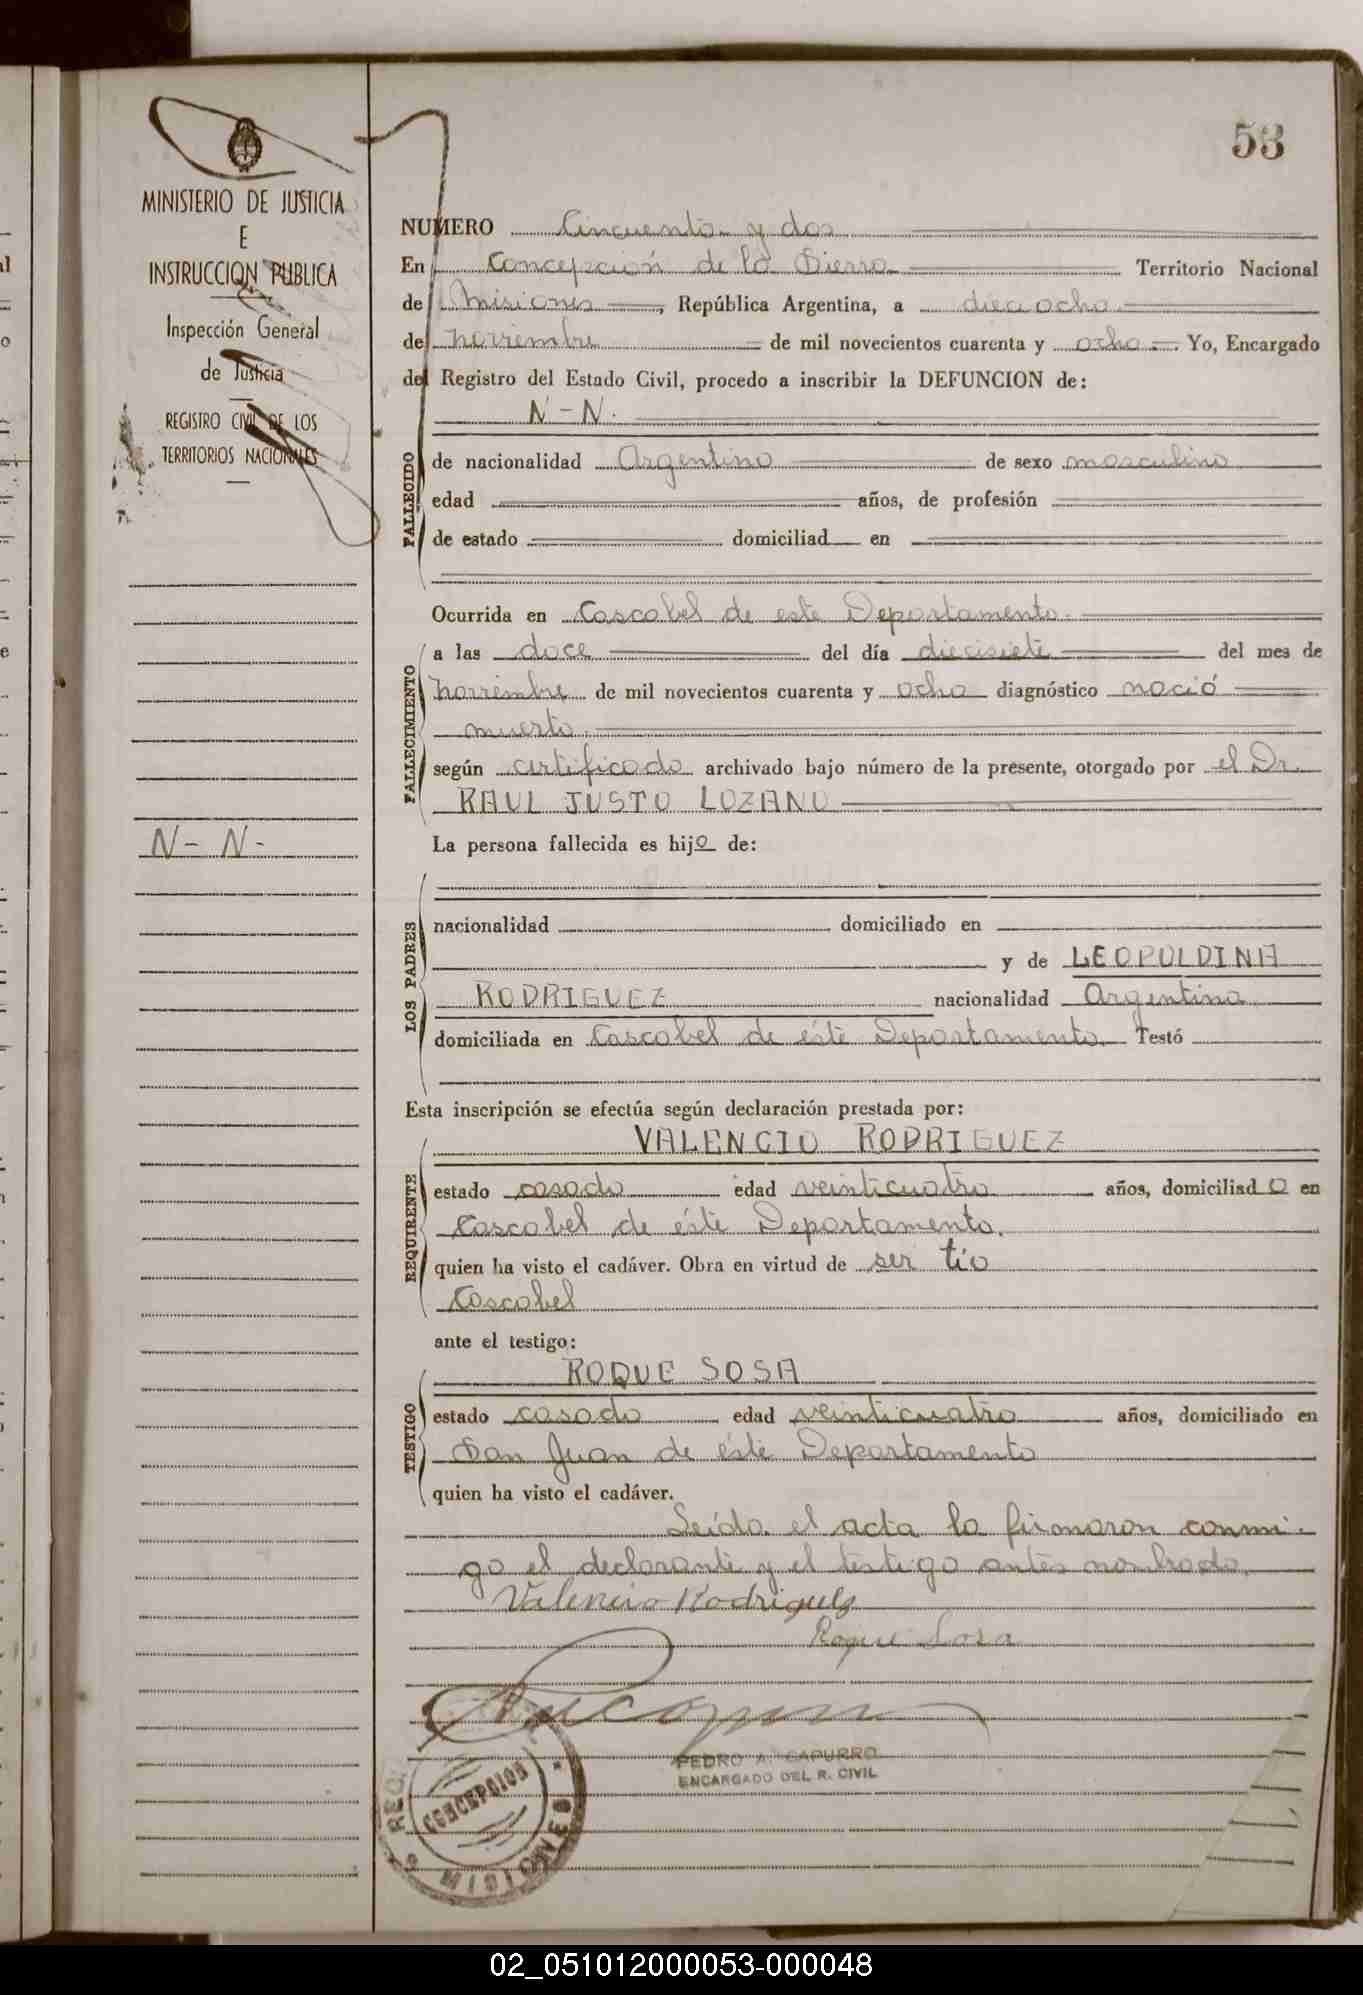 53
MINISTERIO DE JUSTICIA
E
INSTRUCCION PUBLICA
Inspección General
de Justicia
REGISTRO CIVIL DE LOS
TERRITORIOS NACIONALES
N - N -
NUMERO Cincuenta y dos
En Concepción de la Sierra Territorio Nacional
de Misiones, República Argentina, a dieciocho
de noviembre de mil novecientos cuarenta y ocho. Yo, Encargado
del Registro del Estado Civil, procedo a inscribir la DEFUNCION de:
N - N.
FALLECIDO
de nacionalidad Argentino de sexo masculino
edad años, de profesión
de estado domiciliad en
Ocurrida en Cascabel de este Departamento.
FALLECIMIENTO
a las doce del día diecisiete del mes de
noviembre de mil novecientos cuarenta y ocho diagnóstico nació
muerto.
según certificado archivado bajo número de la presente, otorgado por el Dr.
RAUL JUSTO LOZANO
La persona fallecida es hijo de:
LOS PADRES
nacionalidad domiciliado en
y de LEOPOLDINA
RODRIGUEZ nacionalidad Argentina
domiciliada en Cascabel de éste Departamento. Testó
Esta inscripción se efectúa según declaración prestada por:
VALENCIO RODRIGUEZ
REQUIRENTE
estado casado edad veinticuatro años, domiciliado en
Cascabel de éste Departamento.
quien ha visto el cadáver. Obra en virtud de ser tío
Cascabel
ante el testigo:
ROQUE SOSA
TESTIGO
estado casado edad veinticuatro años, domiciliado en
San Juan de éste Departamento
quien ha visto el cadáver.
Leída el acta la firmaron conmi-
go el declarante y el testigo antes nombrado.
Valencio Rodriguez
Roque Sosa
PEDRO A. CAPURRO
ENCARGADO DEL R. CIVIL
CONCEPCION
MISIONES
02_051012000053-000048